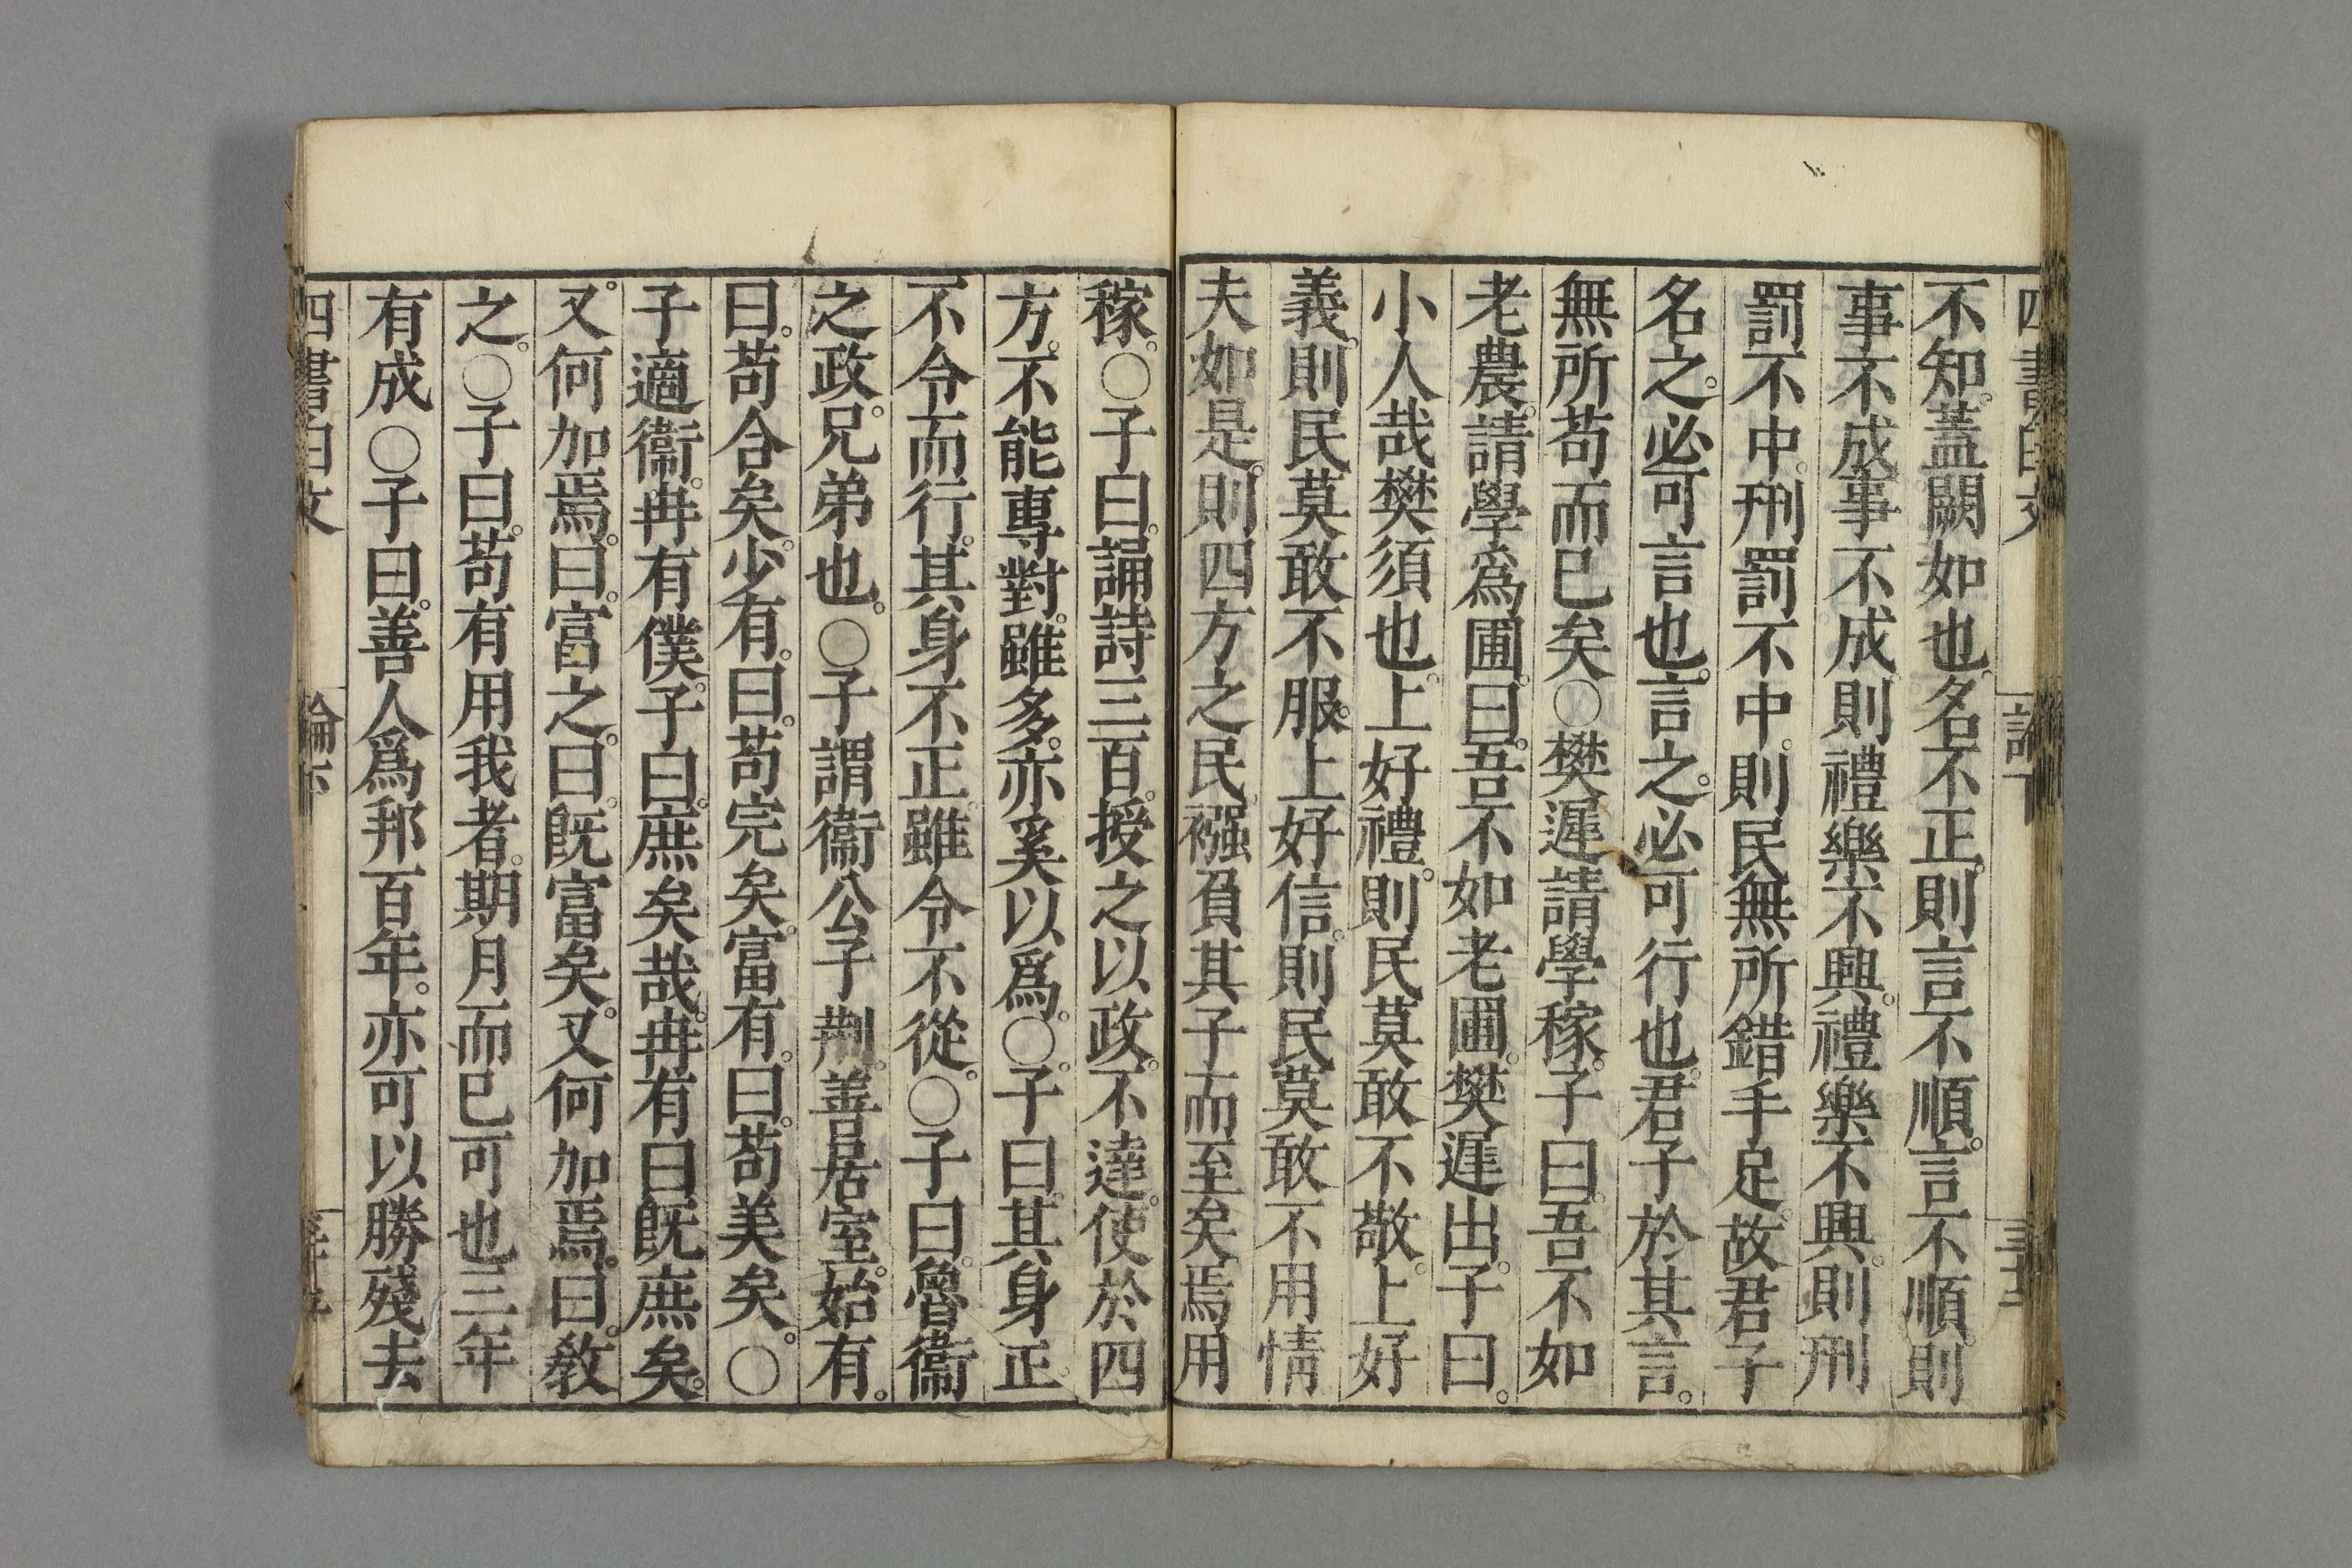 四書白文 論下
不知。蓋闕如也。名不正。則言不順。言不順。則
事不成。事不成則禮樂不興。禮樂不興。則刑
罰不中。刑罰不中。則民無所錯手足。故君子
名之。必可言也。言之。必可行也。君子於其言。
無所苟而已矣〇樊遲請學稼。子曰。吾不如
老農。請學爲圃。曰。吾不如老圃。樊遲出。子曰。
小人哉樊須也。上好禮。則民莫敢不敬。上好
義。則民莫敢不服。上好信。則民莫敢不用情
夫如是。則四方之民。襁負其子而至矣。焉用
稼。〇子曰。誦詩三百。授之以政。不達。使於四
方。不能專對。雖多。亦奚以爲。〇子曰。其身正。
不令而行。其身不正。雖令不從。〇子曰。魯衞
之政。兄弟也。〇子謂衞公子荆。善居室。始有。
曰。苟合矣。少有。曰。苟完矣。富有。曰。苟美矣。〇
子適衞。冉有僕。子曰。庶矣哉。冉有曰。既庶矣。
又何加焉。曰。富之。曰。既富矣。又何加焉。曰。敎
之。〇子曰。苟有用我者。期月而已可也三年
有成〇子曰。善人爲邦百年。亦可以勝殘去
四書白文 論下